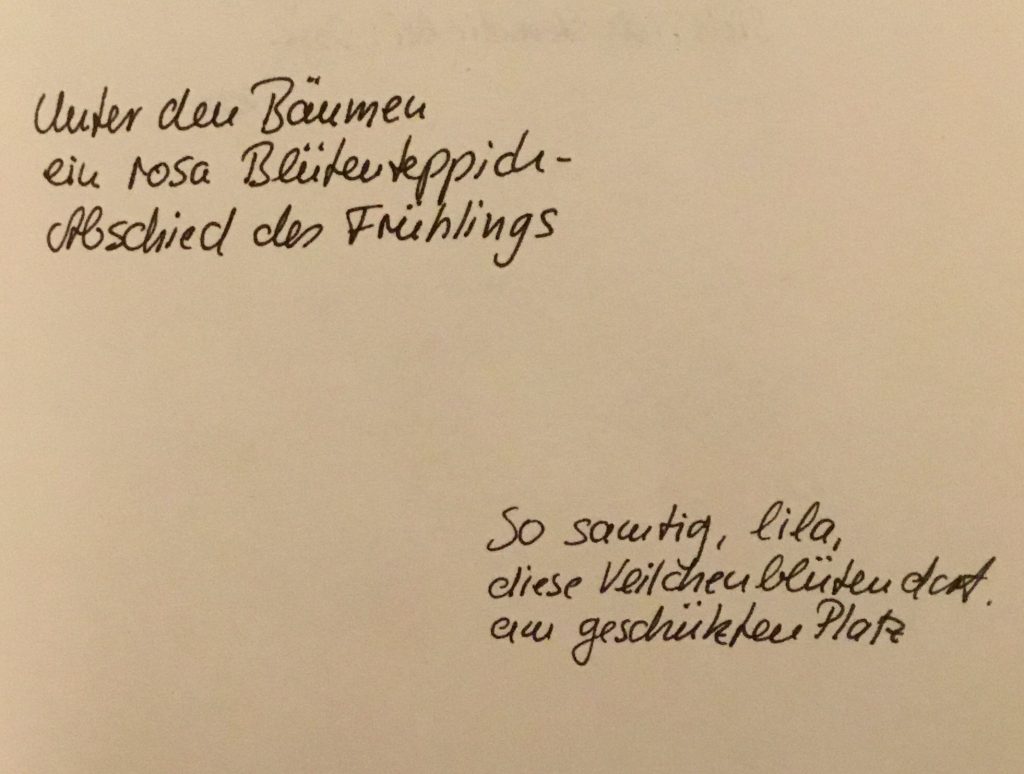 Unter den Bäumen
ein rosa Blütenteppich-
Abschied des Frühlings
So samtig, lila,
diese Veilchenblüten dort.
am geschützten Platz